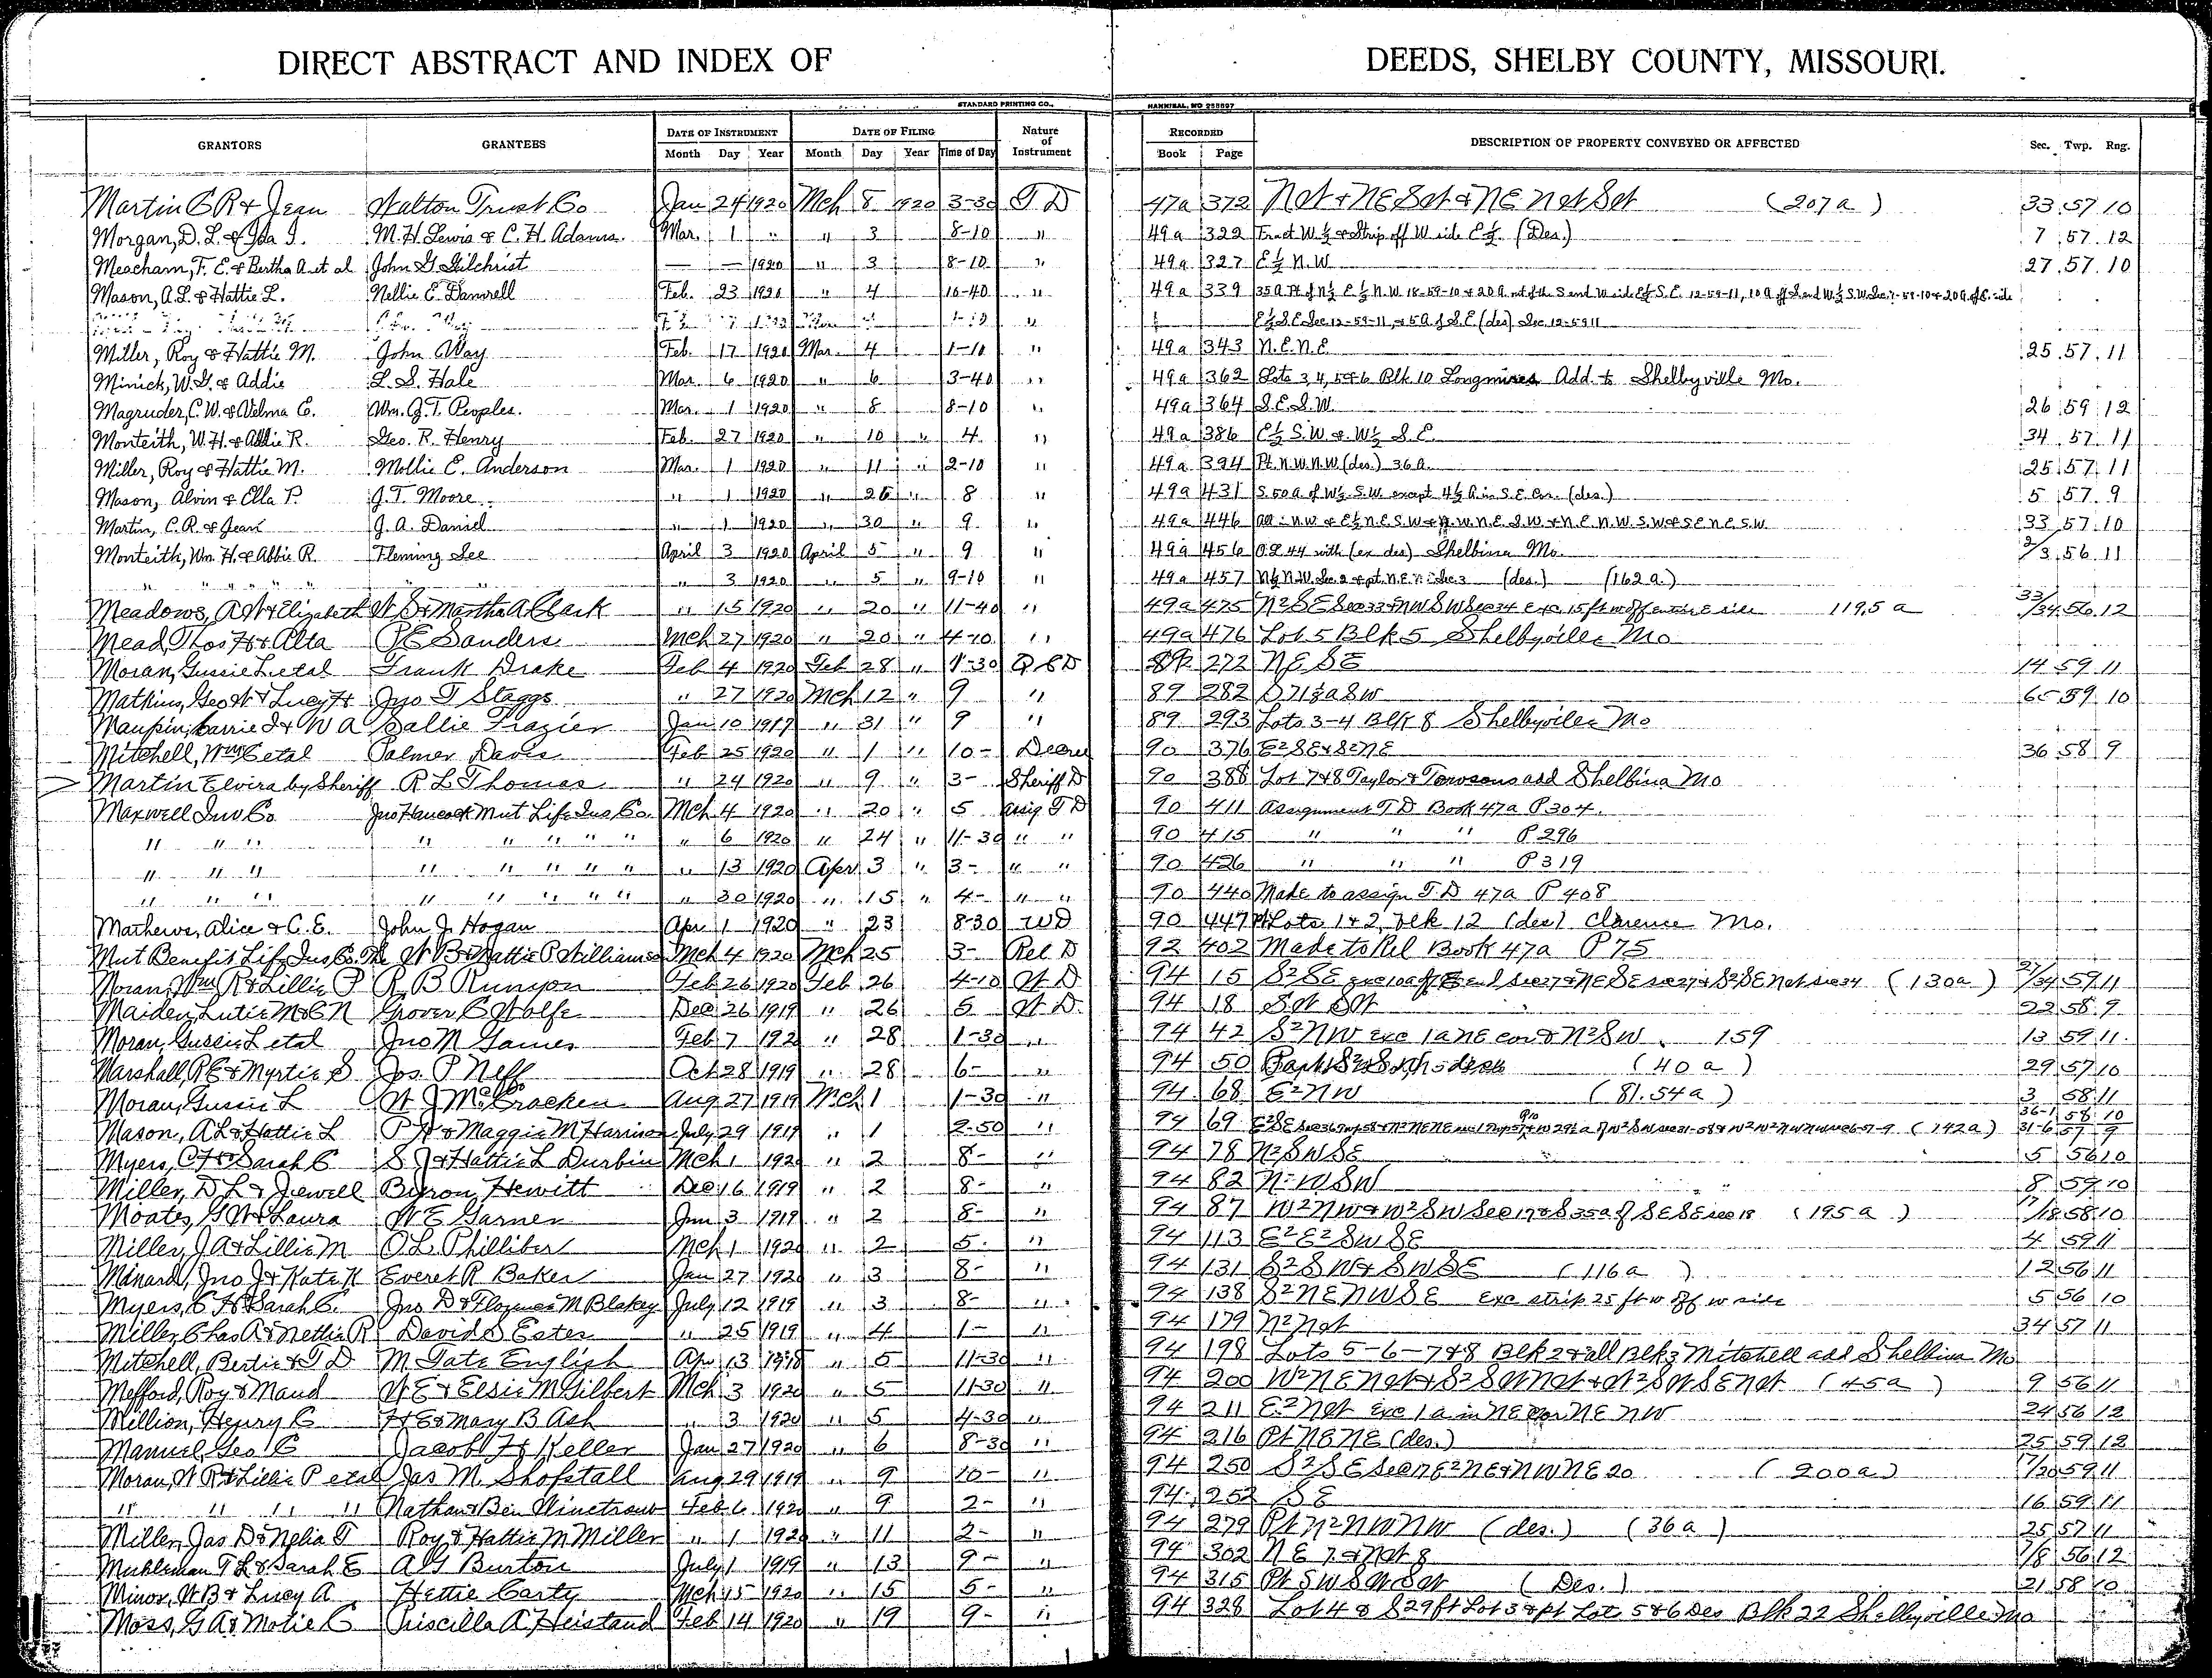 DIRECT ABSTRACT AND INDEX OF DEEDS, SHELBY COUNTY, MISSOURI.
STANDARD PRINTING CO., HANNIBAL, MO
GRANTORS GRANTEES DATE OF INSTRUMENT DATE OF FILING Nature of Instrument RECORDED DESCRIPTION OF PROPERTY CONVEYED OR AFFECTED Sec. Twp. Rng.
Month Day Year Month Day Year Time of Day Book Page
Martin C R & Jean Walton Trust Co Jan 24 1920 Mch 8 1920 3-30 T D 47a 372 (207a) 33 57 10
Morgan, D. L. & Ida I. M. H. Lewis & C. H. Adams. Mar. 1 " " 3 8-10 " 49a 322 Tract W ½ & Strip off W side E ½. (Des.) 7 57 12
Meacham, F. E. & Bertha A. et al John G. Gilchrist — — 1920 " 3 8-10 " 49a 327 E ½ N.W. 27 57 10
Mason, A. L. & Hattie L. Nellie E. Damrell Feb. 23 1920 " 4 10-40 " 49a 339
E ½ S.E. Sec. 12-59-11, & 5A of S.E. (des) Sec. 12-59 11
Miller, Roy & Hattie M. John A. Way Feb. 17 1920 Mar. 4 1-10 " 49a 343 N.E. N.E. 25 57 11
Minick, W. G. & Addie L. S. Hale Mar. 6 1920 " 6 3-40 " 49a 362 Lots 3, 4, 5 & 6 Blk 10 Longmires Add. to Shelbyville Mo.
Magruder, C. W. & Velma E. Wm. G. T. Peoples. Mar. 1 1920 " 8 8-10 " 49a 364 S.E. S.W. 26 59 12
Monteith, W. H. & Abbie R. Geo. R. Henry Feb. 27 1920 " 10 " 4 " 49a 386 E ½ S.W. & W ½ S.E. 34 57 11
Miller, Roy & Hattie M. Mollie E. Anderson Mar. 1 1920 " 11 " 2-10 " 49a 394 Pt. N.W. N.W. (des.) 36 a. 25 57 11
Mason, Alvin & Ella P. J. T. Moore " 1 1920 " 26 " 8 " 49a 431 S. 50 A. of W ½ S.W. except 4 ½ A. in S.E. Cor. (des.) 5 57 9
Martin, C. R. & Jean J. A. Daniel " 1 1920 " 30 " 9 " 49a 446 33 57 10
Monteith, Wm. H. & Abbie R. Fleming Lee April 3 1920 April 5 " 9 " 49a 456 Shelbina Mo. 2/3 56 11
" " " " " " " 3 1920 " 5 " 9-10 " 49a 457 N ½ N.W. Sec. 2 & pt. N.E. Sec. 3 (des.) (162 a.)
Meadows, A W & Elizabeth W S & Martha A Clark " 15 1920 " 20 " 11-40 " 49a 475 N2 SE Sec 33 & NW SW Sec 34 exc. 15 ft w off entire E side 119.5 a 33/34 56 12
Mead, Thos H & Alta P E Sanders Mch 27 1920 " 20 " 4-10 " 49a 476 Lot 5 Blk 5 Shelbyville Mo
Moran, Gussie L et al Frank Drake Feb 4 1920 Feb 28 " 1-30 Q C D 89 272 NE SE 14 59 11
Matkins, Geo W & Lucy H Jno T Staggs " 27 1920 Mch 12 " 9 " 89 282 59 10
Maupin, Carrie I & W A Sallie Frazier Jan 10 1917 " 31 " 9 " 89 293 Lots 3-4 Blk 8 Shelbyville Mo
Mitchell, Wm C et al Palmer Davis Feb 25 1920 " 1 " 10- Decree 90 376 E2 SE & S2 NE 36 58 9
Martin Elvira by Sheriff R L Thomas " 24 1920 " 9 " 3- Sheriff D 90 388 Lot 7 & 8 Taylor & Towsons add Shelbina Mo
Maxwell Inv Co Jno Hancock Mut Life Ins Co. Mch 4 1920 " 20 " 5 Assig T D 90 411 Assignment T D Book 47a P 304.
" " " " " " " " " 6 1920 " 24 " 11-30 " " 90 415 " " " P 296
" " " " " " " " " 13 1920 Apr 3 " 3- " " 90 426 " " " P 319
" " " " " " " " " 30 1920 " 15 " 4- " " 90 440 Made to assign T D 47a P 408
Mathews, Alice & C. E. John J. Hogan Apr 1 1920 " 23 8-30 WD 90 447 Lots 1 & 2, Blk 12 (des) Clarence Mo.
Mut Benefit Life Ins Co. The W B & Mattie P Williams Mch 4 1920 Mch 25 3- Rel D 92 402 Made to Rel Book 47a P 75
Moran, Wm R & Lillie P R B Runyon Feb 26 1920 Feb 26 4-10 W D 94 15 (130a) 27/34 59 11
Maiden, Lutie M & E N Grover C Wolfe Dec 26 1919 " 26 5 W D 94 18 SW SW 22 58 9
Moran, Gussie L et al Jno M Gaines Feb 7 192 " 28 1-30 " 94 42 S2 NW exc 1a NE cor & N2 SW 159 13 59 11
Marshall, R E & Myrtie S Jos. P Neff Oct 28 1919 " 28 6- " 94 50 (40 a) 29 57 10
Moran, Gussie L W J McCracken Aug 27 1919 Mch 1 1-30 " 94 68 E2 NW (81.54a) 3 58 11
Mason, A L & Hattie L P W & Maggie M Harrison July 29 1919 " 1 2-50 " 94 69 (142a) 36-1 58 10 31-6 57 9
Myers, C H & Sarah C S J & Hattie L Durbin Mch 1 1920 " 2 8- " 94 78 N2 SW SE 5 56 10
Miller, D L & Jewell Byron Hewitt Dec 16 1919 " 2 8- " 94 82 8 59 10
Moates, G W & Laura W E Garner Jun 3 1919 " 2 8- " 94 87 W2 NW & W2 SW Sec 17 & S 35a of SE SE sec 18 (195 a) 17/18 58 10
Miller, J A & Lillie M O. L. Philliber Mch 1 1920 " 2 5- " 94 113 E2 E2 SW SE 4 59 11
Minard, Jno J & Kate K Everet R Baker Jan 27 1920 " 3 8- " 94 131 S2 SW & SW SE (116a) 12 56 11
Myers, C H & Sarah C. Jno D & Florence M Blakey July 12 1919 " 3 8- " 94 138 S2 NE NW SE exc strip 25 ft w off w side 5 56 10
Miller, Chas A & Nettie R David S Estes " 25 1919 " 4 1- " 94 179 N2 NW 34 57 11
Mitchell, Bertie & T D M Tate English Apr 13 1918 " 5 11-30 " 94 198 Lots 5-6-7 & 8 Blk 2 & all Blk 3 Mitchell add Shelbina Mo
Mefford, Roy & Maud W E & Elsie M Gilbert Mch 3 1920 " 5 11-30 " 94 200 W2 NE NW & S2 SW NW & W2 SW SE NW (45a) 9 56 11
Million, Henry C H E & Mary B Ash " 3 1920 " 5 4-30 " 94 211 E2 NW exc 1a in NE cor NE NW 24 56 12
Manuel, Geo C Jacob H Keller Jan 27 1920 " 6 8-30 " 94 216 Pt NE NE (des.) 25 59 12
Moran, W R & Lillie P et al Jas M. Shofstall Aug 29 1919 " 9 10- " 94 250 S2 SE Sec 17 E2 NE & NW NE 20 (200a) 17/20 59 11
" " " " Nathan & Ben Winetraub Feb 6 1920 " 9 2- " 94 252 SE 16 59 11
Miller, Jas D & Nelia T Roy & Hattie M Miller " 1 1920 " 11 2- " 94 279 Pt N2 NW NW (des.) (36a) 25 57 11
Muhleman T L & Sarah E A G Burton July 1 1919 " 13 9- " 94 302 NE 7 & NW 8 7/8 56 12
Minor, W B & Lucy A Hettie Carty Mch 15 1920 " 15 5- " 94 315 Pt SW SW SW (Des.) 21 58 10
Moss, G A & Molie C Priscilla A Heistand Feb 14 1920 " 19 9- " 94 328 Lot 4 & S 29 ft Lot 3 & pt Lots 5 & 6 Des Blk 22 Shelbyville Mo